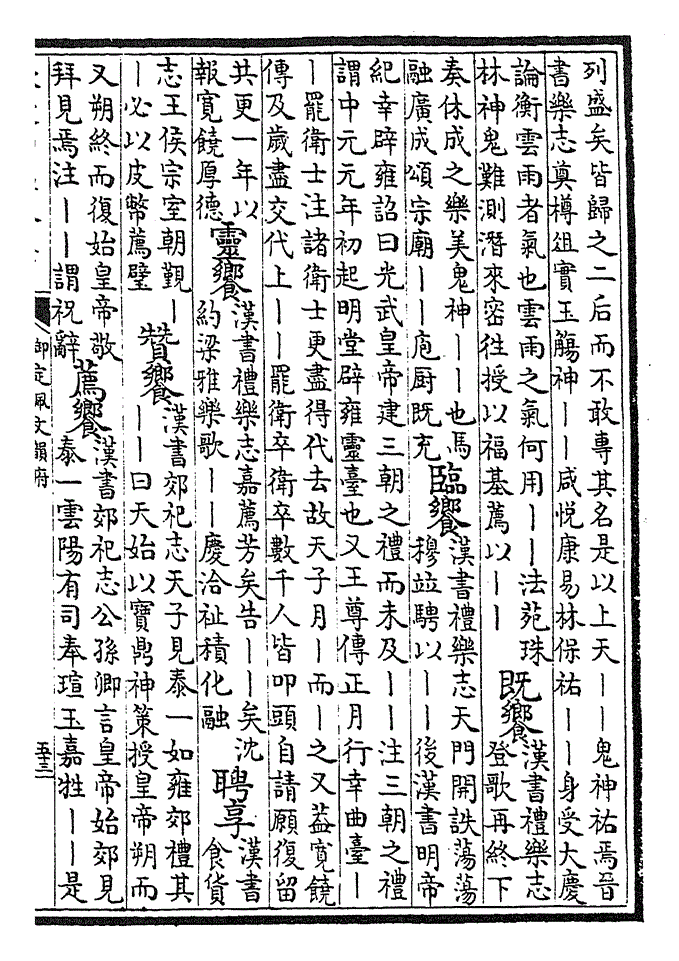 列盛矣皆歸之二后而不敢專其名是以上天丨丨鬼神祐焉晉
書樂志奠樽俎實玉觴神丨丨咸悅康易林保祐丨丨身受大慶
論衡雲雨者氣也雲雨之氣何用丨丨法苑珠
林神鬼難測潛來密往授以福基薦以丨丨
既饗
漢書禮樂志
登歌再終下
奏休成之樂美鬼神丨丨也馬
融廣成頌宗廟丨丨庖厨既充
臨饗
漢書禮樂志天門開詄蕩蕩
穆竝騁以丨丨後漢書明帝
紀幸辟雍詔曰光武皇帝建三朝之禮而未及丨丨注三朝之禮
謂中元元年初起明堂辟雍靈臺也又王尊傳正月行幸曲臺丨
丨罷衛士注諸衛士更盡得代去故天子月丨而丨之又葢寬饒
傳及歲盡交代上丨丨罷衛卒衛卒數千人皆叩頭自請願復留
共更一年以
報寬饒厚德
靈饗
漢書禮樂志嘉薦芳矣告丨丨矣沈
約梁雅樂歌丨丨慶洽祉積化融
聘享
漢書
食貨
志王侯宗室朝覲丨
丨必以皮幣薦璧
贊饗
漢書郊祀志天子見泰一如雍郊禮其
丨丨曰天始以寶鼎神策授皇帝朔而
又朔終而復始皇帝敬
拜見焉注丨丨謂祝辭
薦饗
漢書郊祀志公孫卿言皇帝始郊見
泰一雲陽有司奉瑄玉嘉牲丨丨是
御定佩文韻府
五三